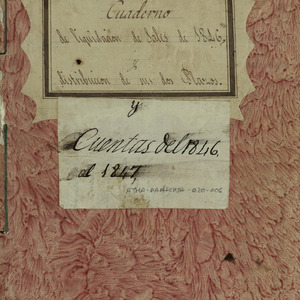 Cuaderno
de liquidacion de Sales de 1846,
y
distribucion de sus dos Plazos.
y
Cuentas del 1846.
al 1847,